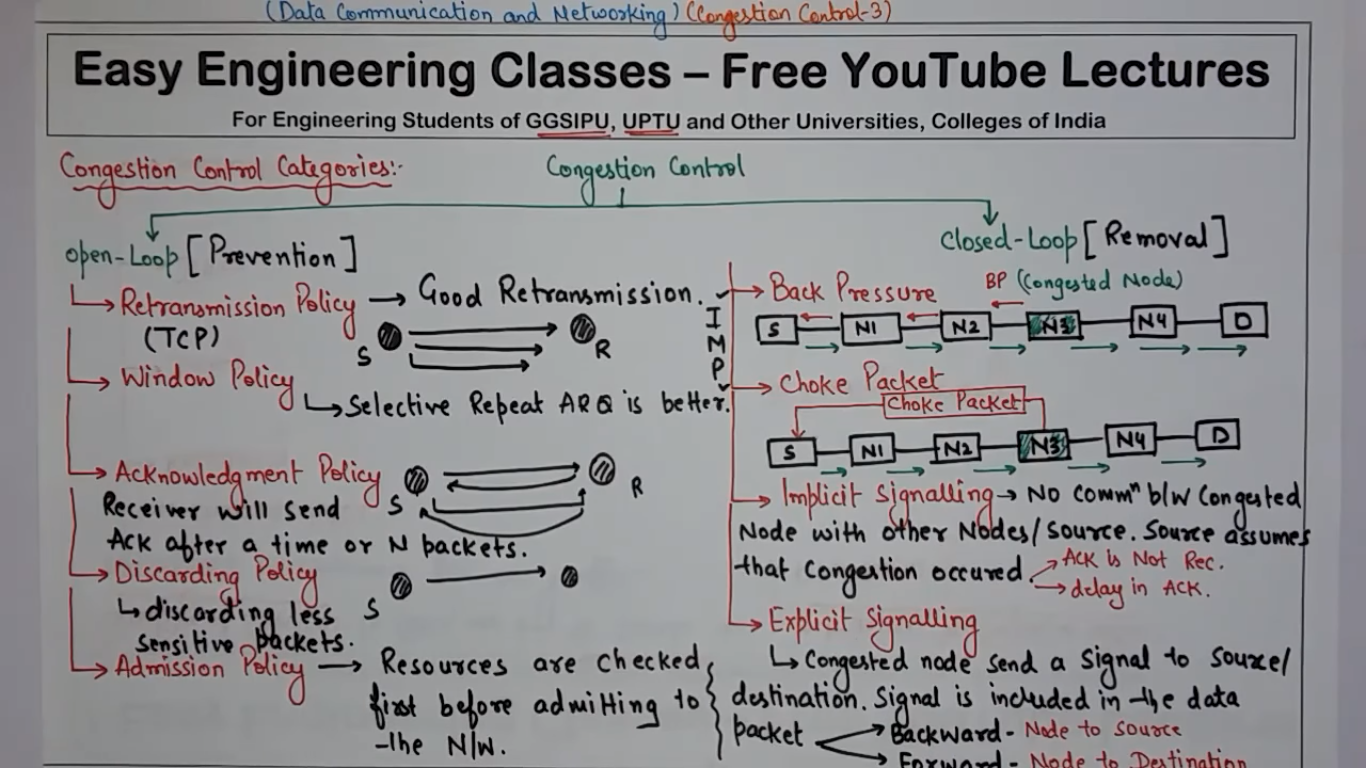 (Data Communication and Networking) (Congestion Control-3)
Easy Engineering Classes – Free YouTube Lectures
For Engineering Students of GGSIPU, UPTU and Other Universities, Colleges of India
Congestion Control Categories:-
Congestion Control
open-Loop [Prevention]
Retransmission Policy → Good Retransmission.
(TCP)
S R
Window Policy
Selective Repeat ARQ is better.
Acknowledgment Policy
S R
Receiver will send
Ack after a time or N packets.
Discarding Policy
S
discarding less
sensitive packets.
Admission Policy → Resources are checked
first before admitting to
the N/W.
IMP
Closed-Loop [Removal]
Back Pressure
BP (Congested Node)
S N1 N2 N3 N4 D
Choke Packet
Choke Packet
S N1 N2 N3 N4 D
Implicit Signalling → No Commⁿ b/w Congested
Node with other Nodes/source. Source assumes
that Congestion occured.
Ack is Not Rec.
delay in ACK.
Explicit Signalling
Congested node send a signal to source/
destination. Signal is included in the data
packet
Backward - Node to source
Forward - Node to Destination